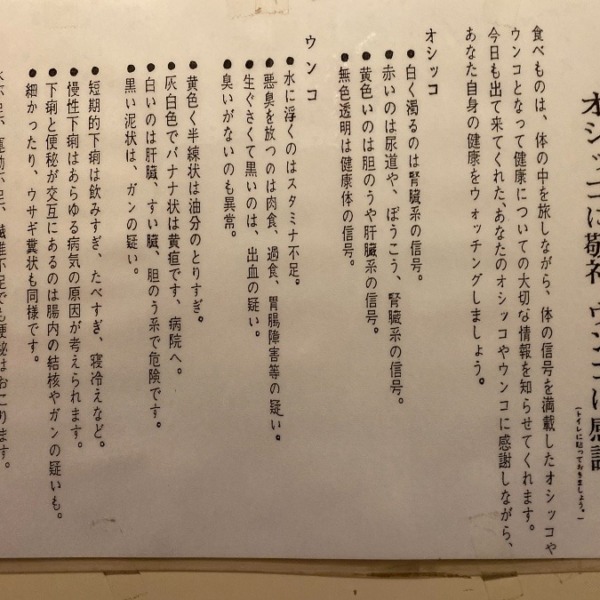 オシッコに敬礼 ウンコに感謝
(トイレに貼っておきましょう。)
食べものは、体の中を旅しながら、体の信号を満載したオシッコや
ウンコとなって健康についての大切な情報を知らせてくれます。
今日も出て来てくれた、あなたのオシッコやウンコに感謝しながら、
あなた自身の健康をウォッチングしましょう。
オシッコ
●白く濁るのは腎臓系の信号。
●赤いのは尿道や、ぼうこう、腎臓系の信号。
●黄色いのは胆のうや肝臓系の信号。
●無色透明は健康体の信号。
ウンコ
●水に浮くのはスタミナ不足。
●悪臭を放つのは肉食、過食、胃腸障害等の疑い。
●生ぐさくて黒いのは、出血の疑い。
●臭いがないのも異常。
●黄色く半線状は油分のとりすぎ。
●灰白色でバナナ状は黄疸です、病院へ。
●白いのは肝臓、すい臓、胆のう系で危険です。
●黒い泥状は、ガンの疑い。
●短期的下痢は飲みすぎ、たべすぎ、寝冷えなど。
●慢性下痢はあらゆる病気の原因が考えられます。
●下痢と便秘が交互にあるのは腸内の結核やガンの疑いも。
●細かったり、ウサギ糞状も同様です。
水不足、運動不足、繊維不足でも便秘はおこります。